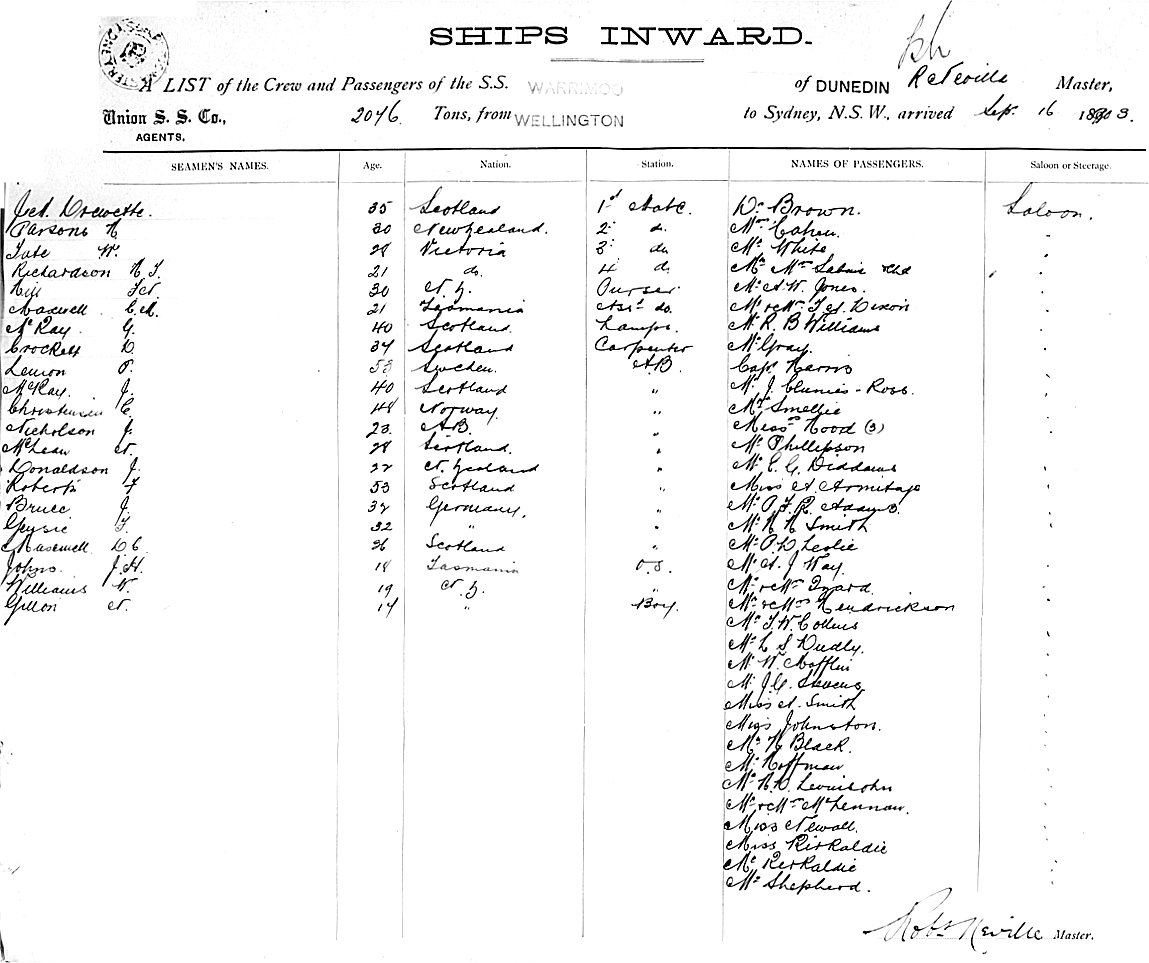 SHIPS INWARD.
A LIST of the Crew and Passengers of the S.S. WARRIMOO of DUNEDIN R Neville Master,
Union S. S. Co., 2046. Tons, from WELLINGTON to Sydney, N.S.W., arrived Sep. 16 1903.
AGENTS.
SEAMEN'S NAMES. Age. Nation. Station. NAMES OF PASSENGERS. Saloon or Steerage.
35 Scotland 1st Mate. Dr Brown. Saloon.
Parsons H 30 New Zealand. 2d do. Mrs Cahen. "
Tate W. 28 Victoria 3d do Mr White "
Richardson H T. 21 do. 4 do Mr Mrs "
Hill 30 N. Z. Purser Mr A W. Jones. "
Maxwell C.A. 21 Tasmania Asst do. Mr & Mrs Dixon "
McKay G. 40 Scotland. Lamps. Mr R. B Williams "
Crockett D. 34 Scotland Carpenter Mr Gray. "
Lemon P. 53 Sweden. AB. Capt Harris "
McKay. J. 40 Scotland " Mr J. Clunies-Ross. "
Christensen C. 48 Norway. " Mrs Smellie "
Nicholson J. 23. A.B. " Misses Hood (3) "
McLean N. 28 Scotland. " Mr Phillipson "
Donaldson J. 22 N. Zealand " Mr E. G. Diddams "
Roberts F 53 Scotland " Miss A Armitage "
Bruce J. 32 Germany. " Mr P. F. R. Adams. "
T. 32 " " Mr H H Smith "
Maxwell D C. 26 Scotland " Mr P. D Leslie "
Johns. J.H. 18 Tasmania O.S. Mr A. J Way. "
Williams W. 19 N. Z. " Mr & Mrs Izard. "
Gillon N. 17 " Boy. Mr & Mrs Hendrickson "
Mr T. W. Collins "
Mr L S Dudly. "
Mr W. Mofflin "
Mr J.G. Stevens "
Miss A. Smith "
Miss Johnston. "
Mr H Black. "
Mr Hoffman "
Mr H.D. Lewisohn "
Mr & Mrs McLennan. "
Miss Newall. "
Miss Kirkaldie "
Mr Kirkaldie "
Mr Shepherd. "
Robt Neville Master.